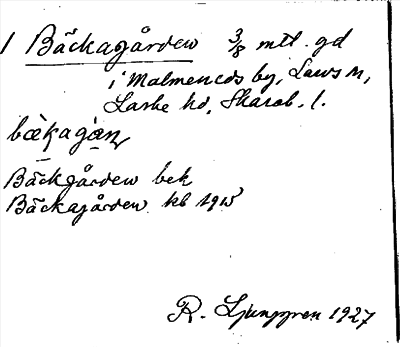 1 Bäckagården 3/8 mtl. gd
i Malmeneds by, Larvs sn,
Laske hd, Skarab. l.
bæ̀kagàɳ
Bäckgården bek
Bäckagården kb 1915
R. Ljunggren 1927